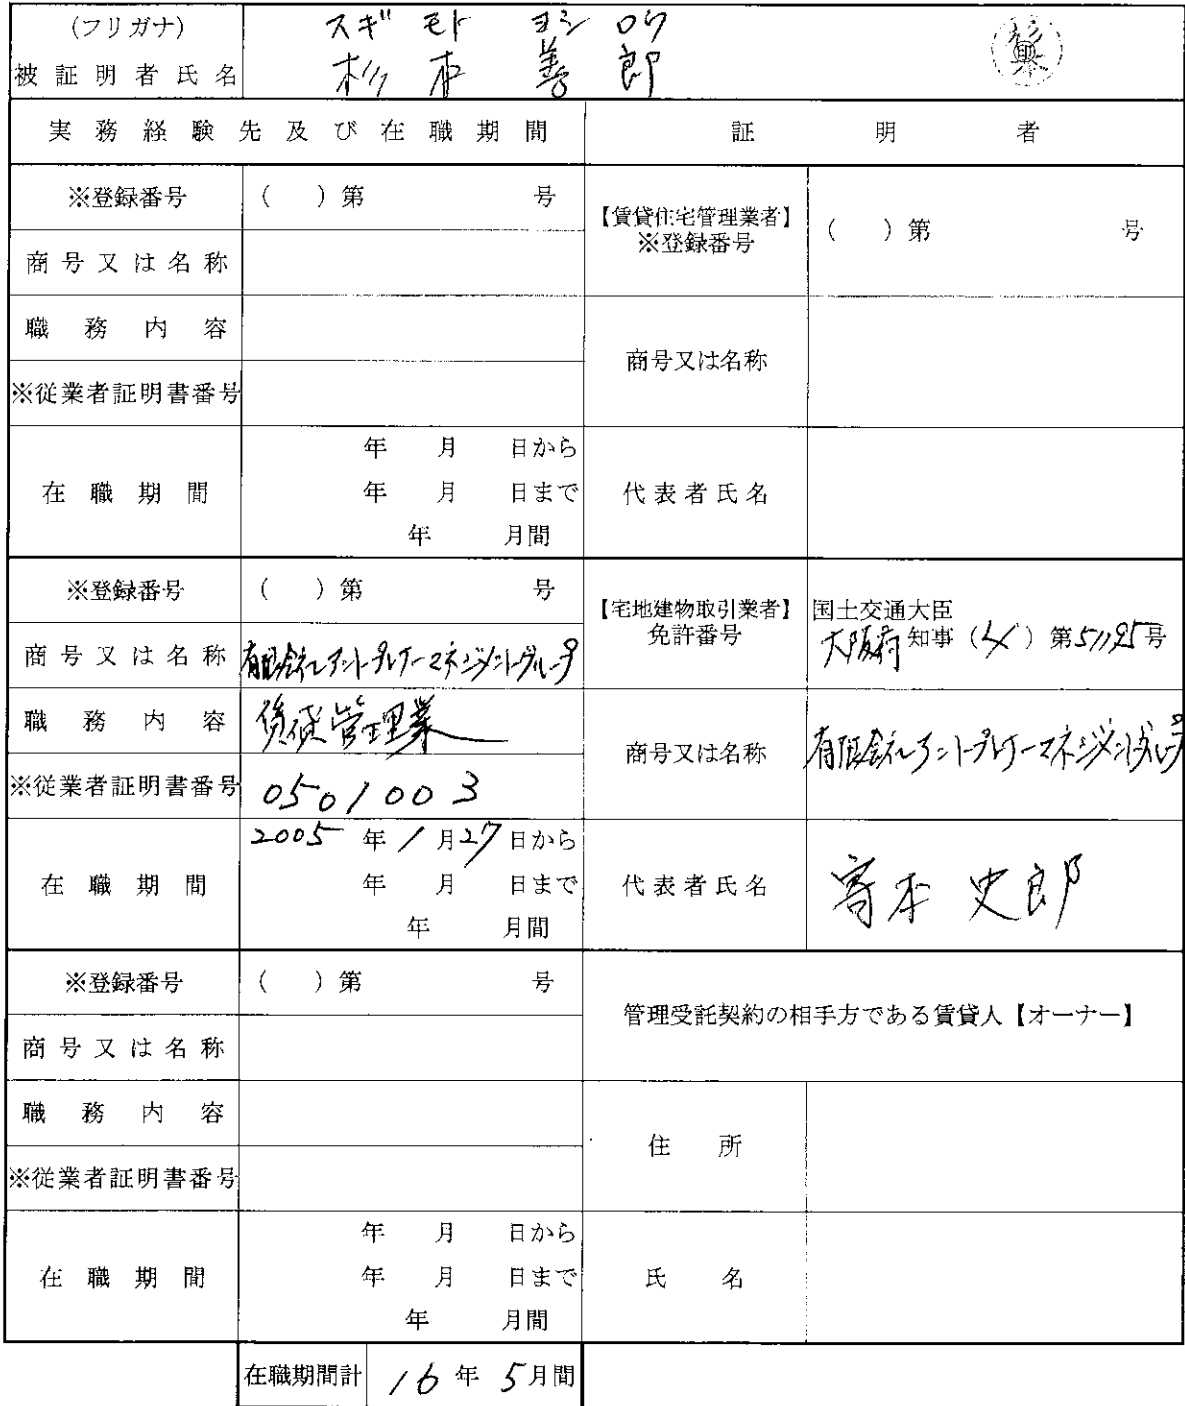 (フリガナ) スギモト ヨシロウ
被証明者氏名 杉本 善郎
実務経験先及び在職期間 証明者
※登録番号 ( )第 号
【賃貸住宅管理業者】
※登録番号 ( )第 号
商号又は名称
職務内容
商号又は名称
※従業者証明書番号
年 月 日から
在職期間 年 月 日まで
年 月間
代表者氏名
※登録番号 ( )第 号
【宅地建物取引業者】 国土交通大臣
免許番号 大阪府 知事 ( )第51195号
商号又は名称 有限会社アントレプレナーマネジメントグループ
職務内容 賃貸管理業
商号又は名称 有限会社アントレプレナーマネジメントグループ
※従業者証明書番号 0501003
2005年1月27日から
在職期間 年 月 日まで
年 月間
代表者氏名 寄本 史郎
※登録番号 ( )第 号
管理受託契約の相手方である賃貸人【オーナー】
商号又は名称
職務内容
住所
※従業者証明書番号
年 月 日から
在職期間 年 月 日まで
年 月間
氏名
在職期間計 16年5月間